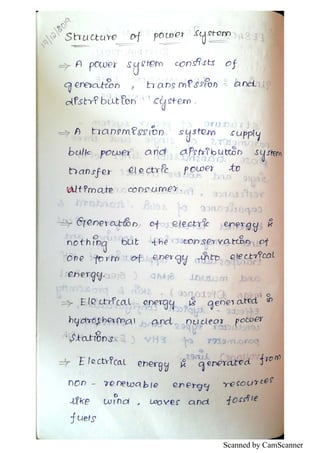 19/12/2019
Structure of power system
⇒ A power system consists of
generation, transmission and
distribution system.
⇒ A transmission system supply
bulk power and distribution system
transfer electric power to
ultimate consumer.
⇒ Generation of electric energy is
nothing but the conservation of
one form of energy into electrical
energy.
⇒ Electrical energy is generated in
hydrothermal and nuclear power
stations.
⇒ Electrical energy is generated from
non-renewable energy resources
like wind, waves and fossile
fuels
Scanned by CamScanner